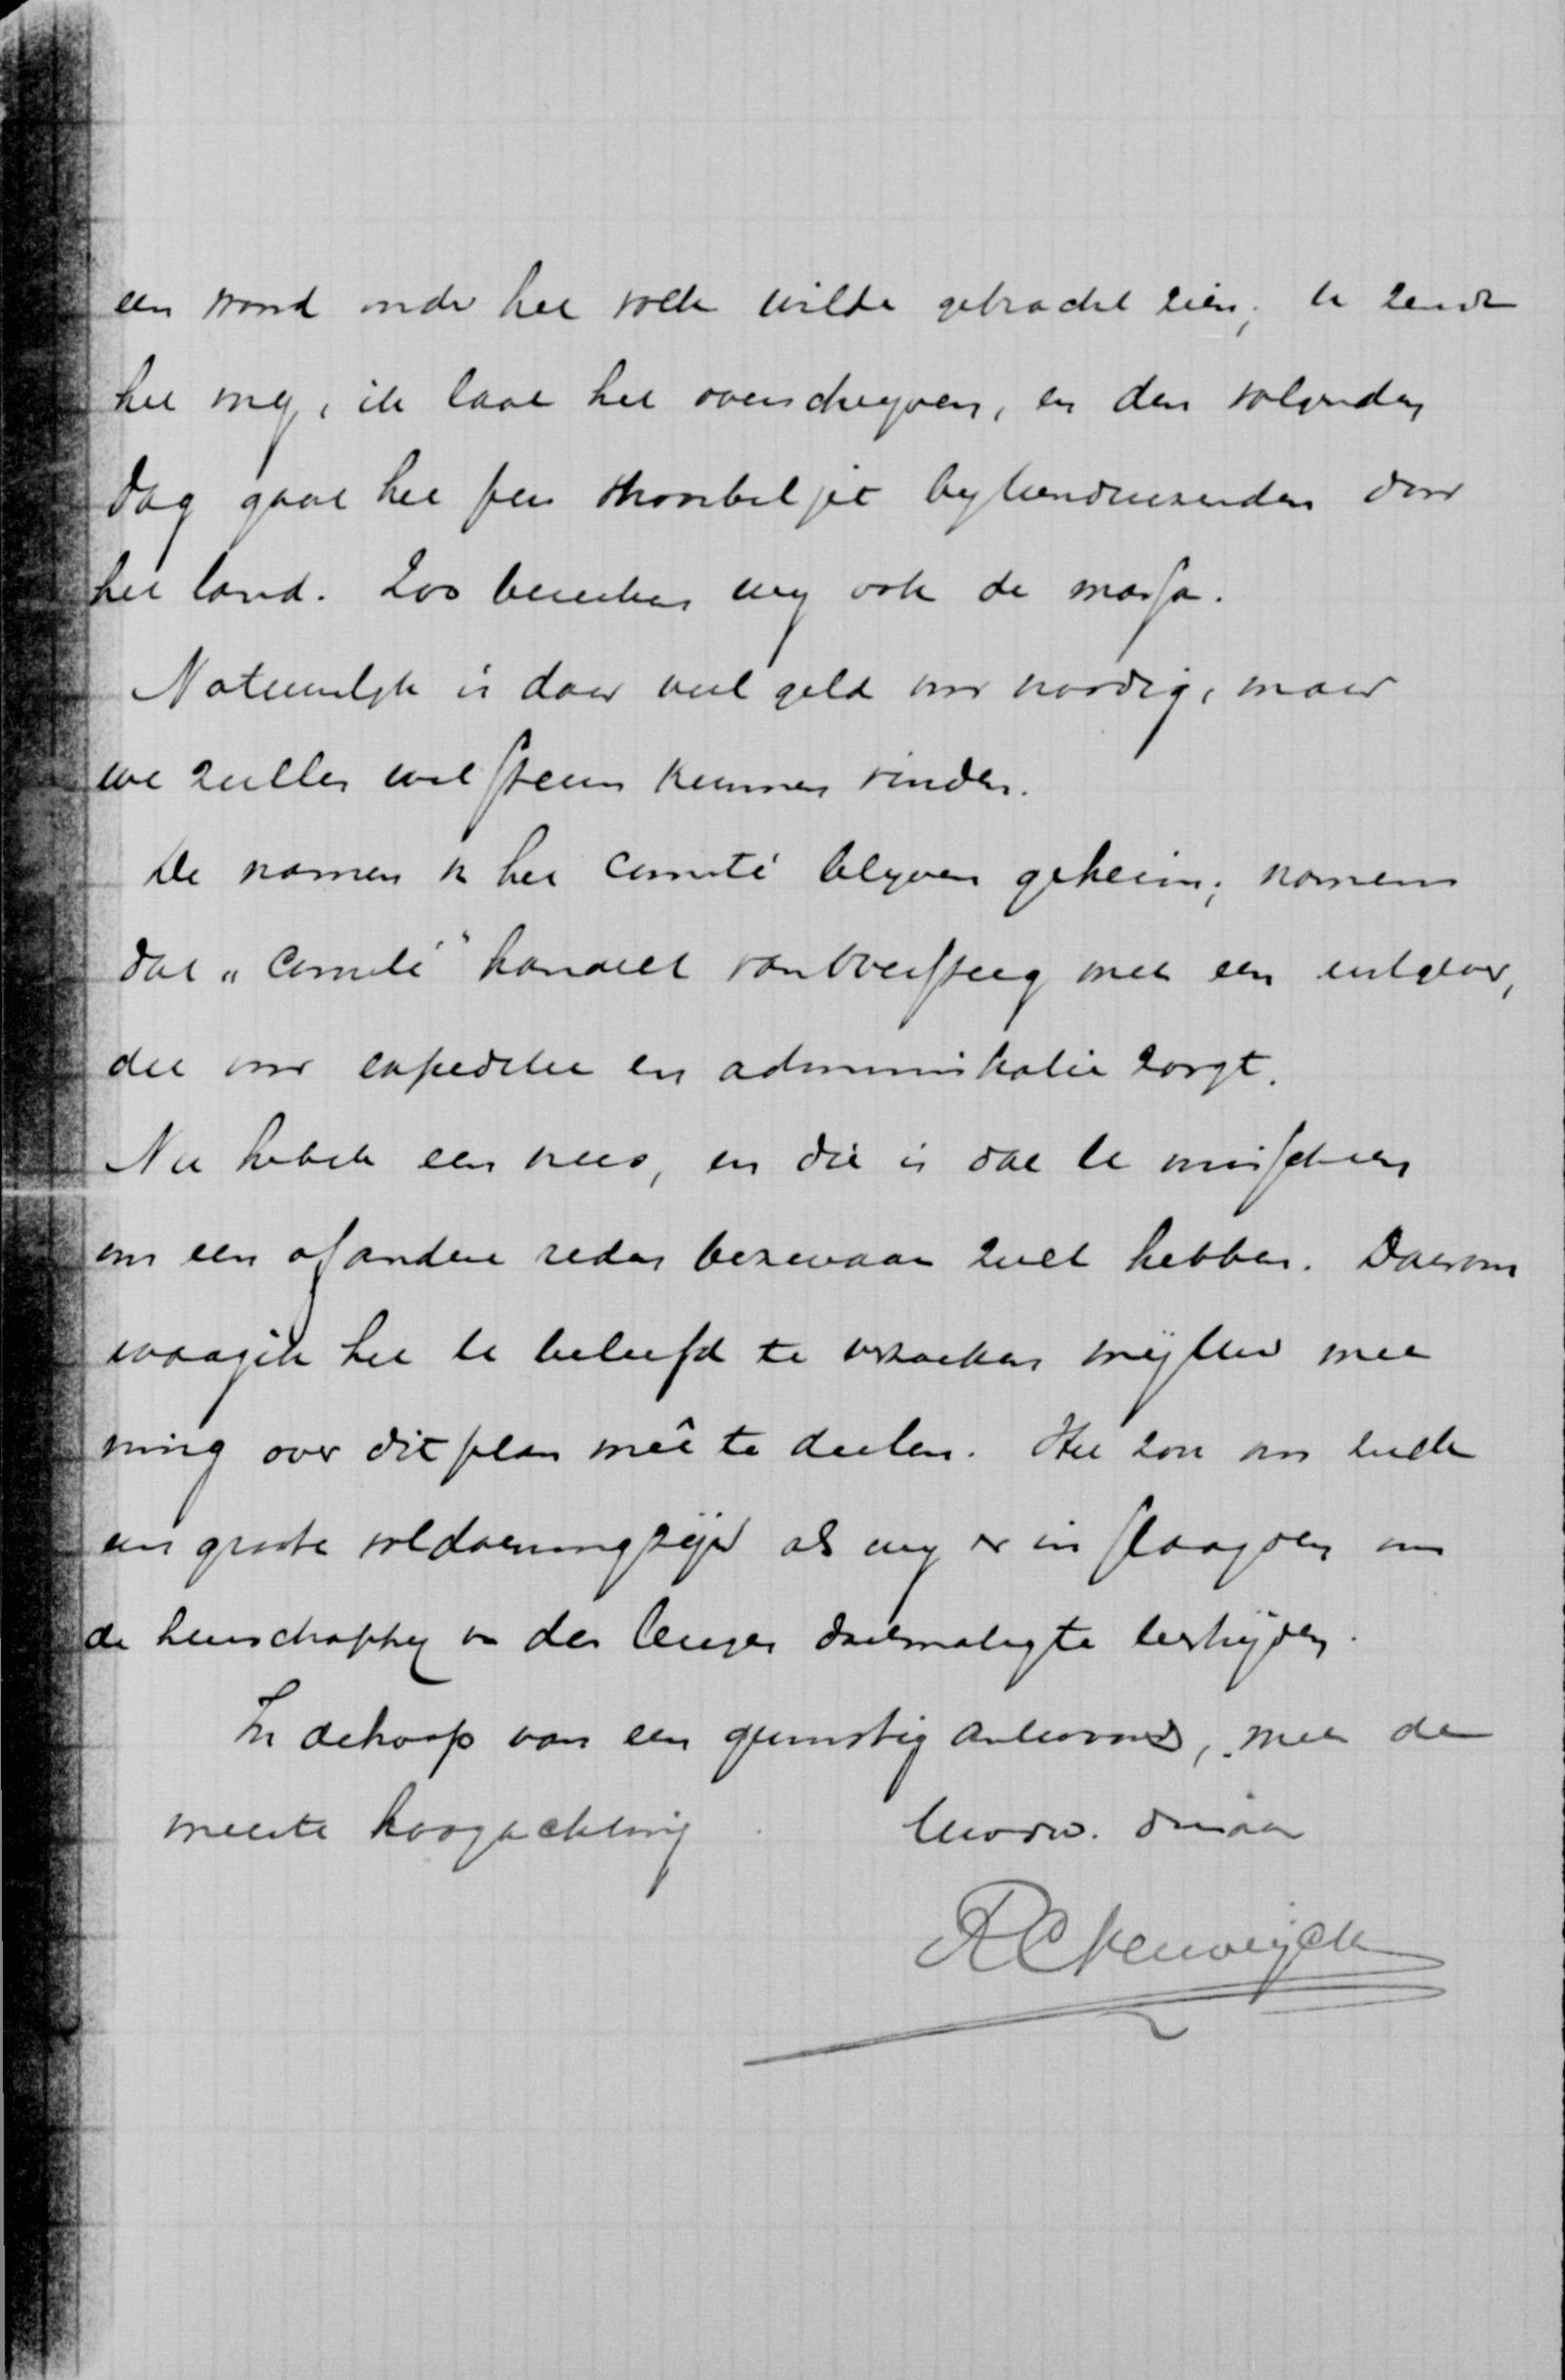 een woord onder het volk wilde gebracht zien; U zendt
het my, ik laat het overschryven, en den volgenden
dag gaat het per strooibiljet byhonderduizenden door
het land. Zoo bereiken wy ook de massa.
Natuurlyk is daar veel geld voor noodig, maar
we zullen wel steun kunnen vinden.
De namen v. het Comité blyven geheim; namens
dat „Comité" handelt van Oversteeg met een uitgever,
die voor expeditie en administratie zorgt.
Nu heb ik een vrees, en die is dat U misschien
om een of andere reden bezwaar zult hebben. Daarom
waag ik het U beleefd te verzoeken mij Uw mee
ning over dit plan meê te deelen. Het zou een
een groote voldoening zijn als wy er in slaagden om
de heerschappy v. den leugen doelmatig te bestrijden.
In de hoop van een gunstig antwoord, met de
meeste hoogachting Uw dw. dienaar